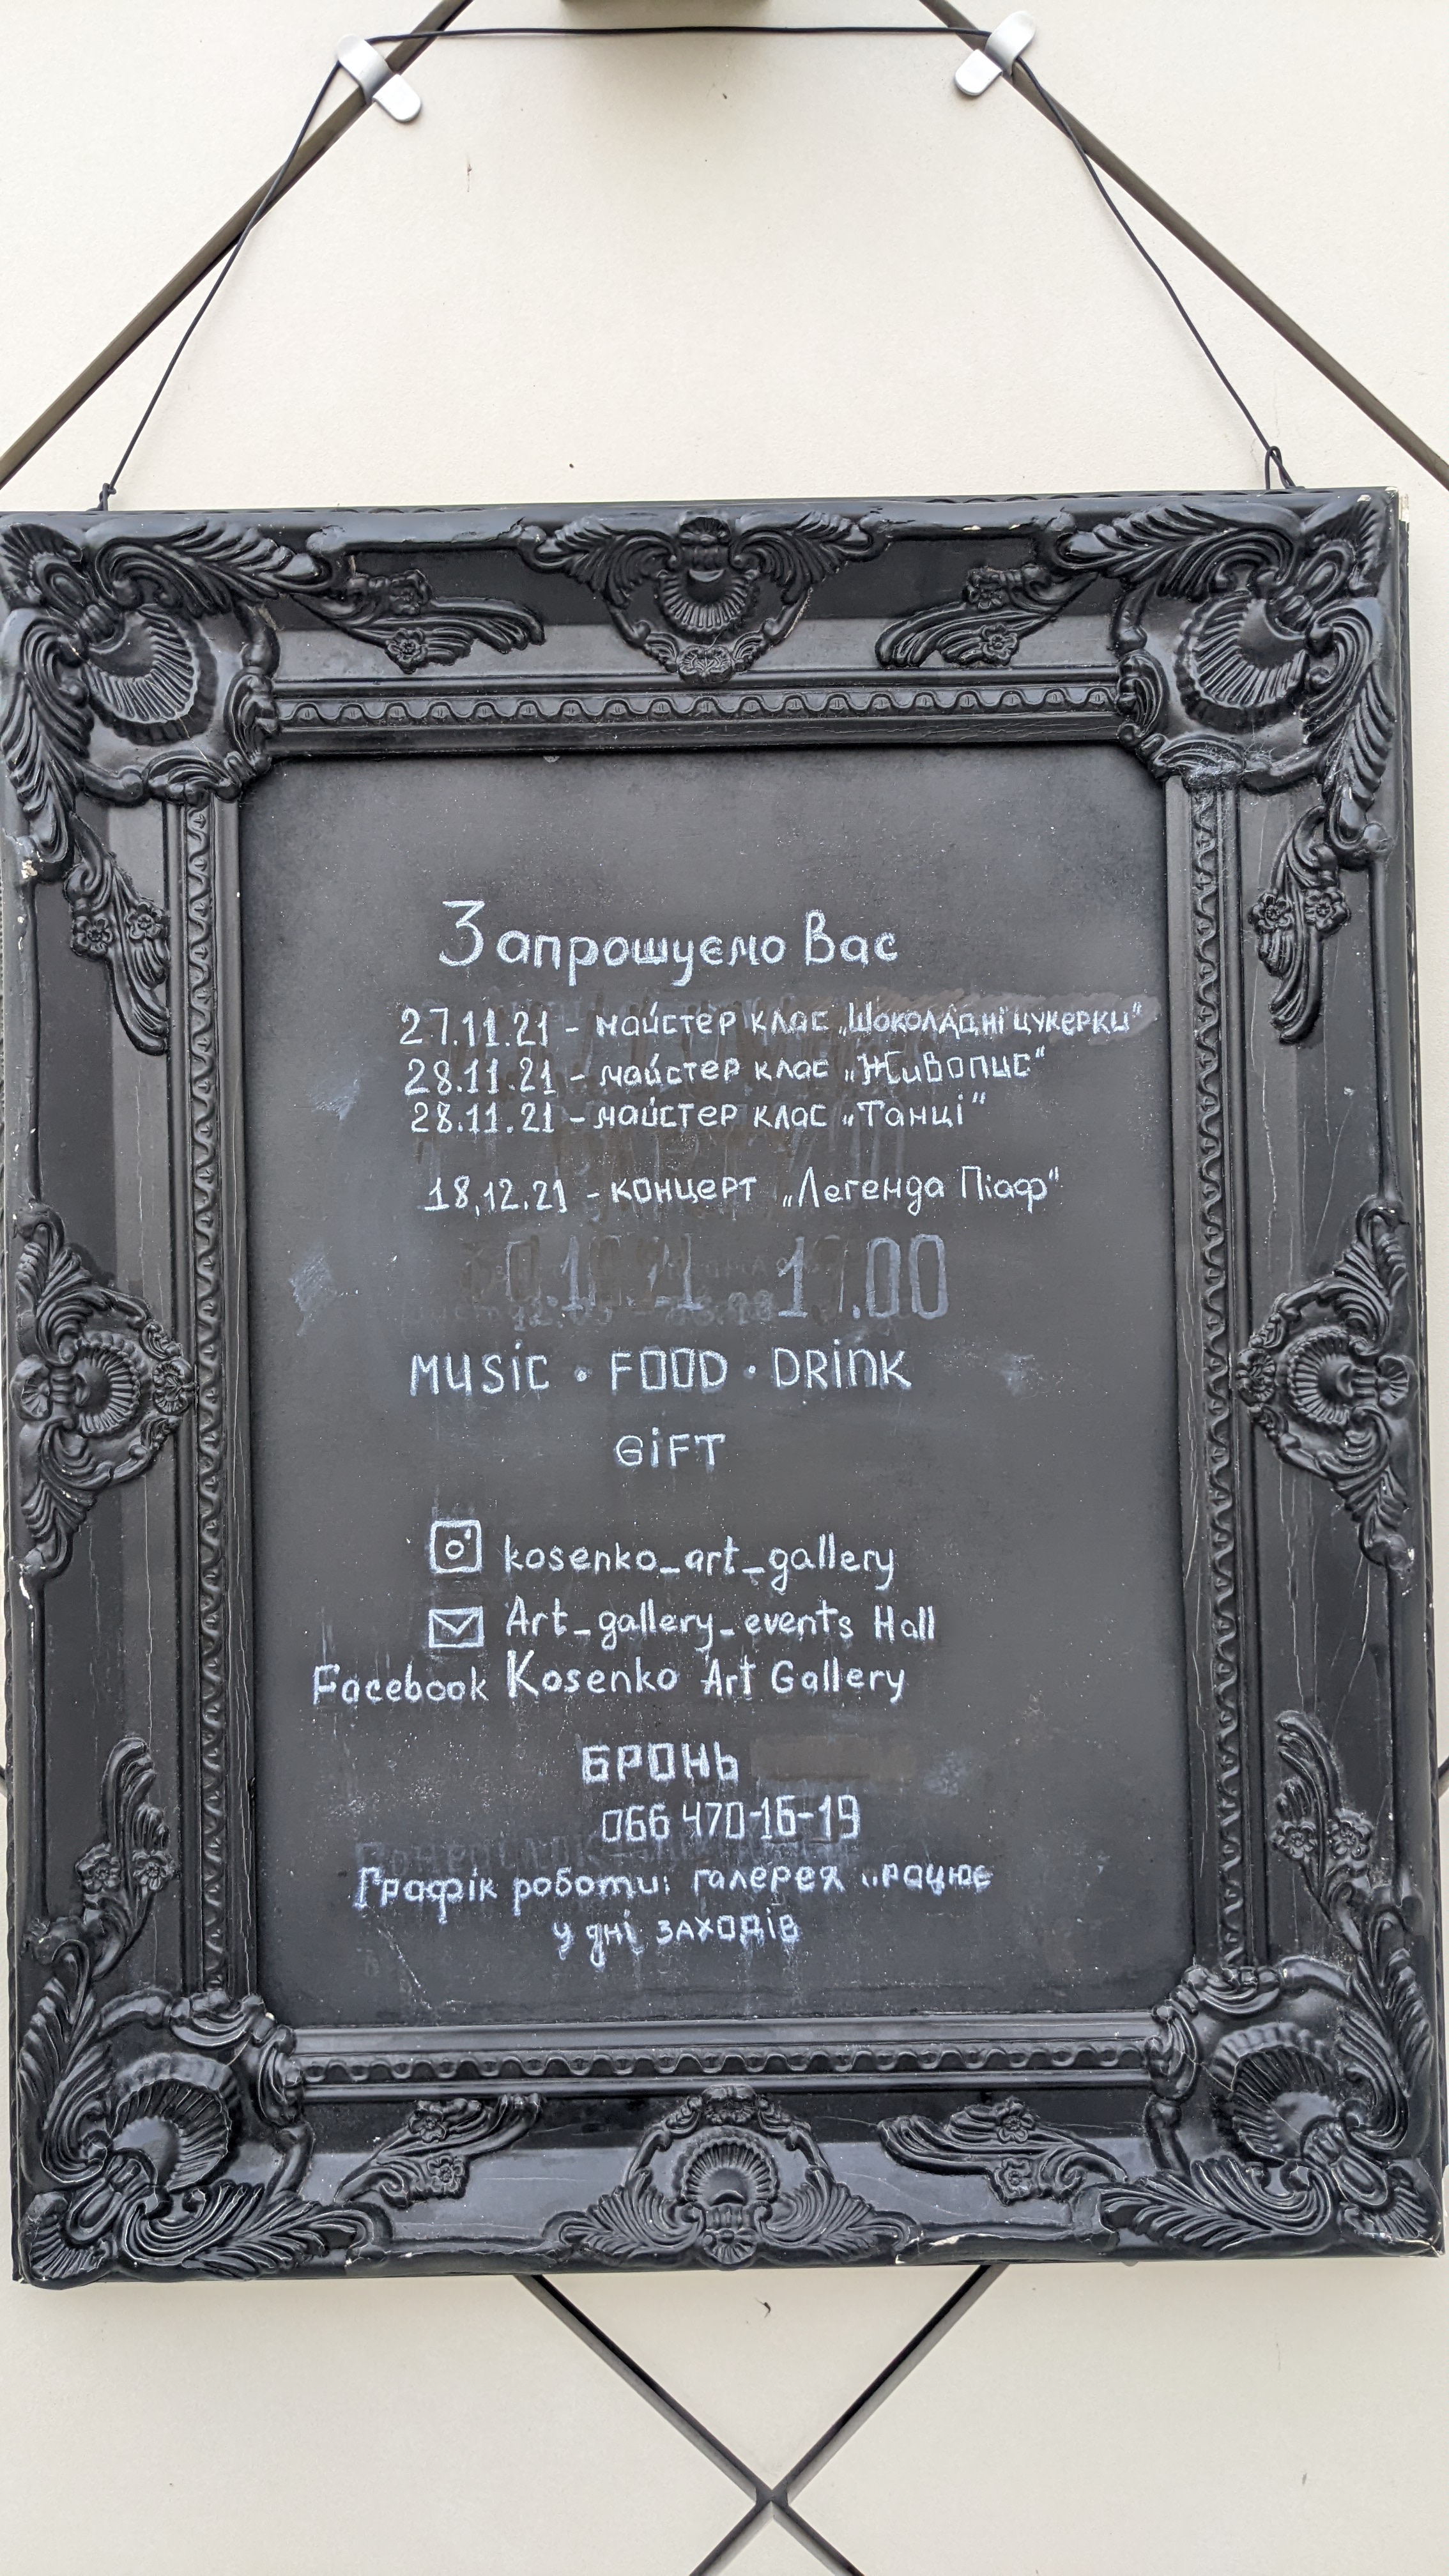 Запрошуємо Вас
27.11.21 - майстер клас „Шоколадні цукерки"
28.11.21 - майстер клас „Живопис"
28.11.21 - майстер клас „Танці"
18.12.21 - концерт „Легенда Піаф"
MUSIC · FOOD · DRINK
GIFT
kosenko_art_gallery
Art_gallery_events Hall
Facebook Kosenko Art Gallery
БРОНЬ
066 470-16-19
Графік роботи: галерея працює
у дні заходів